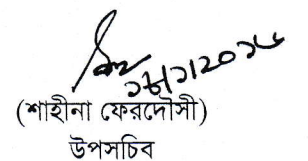 (শাহীনা ফেরদৌসী)
উপসচিব